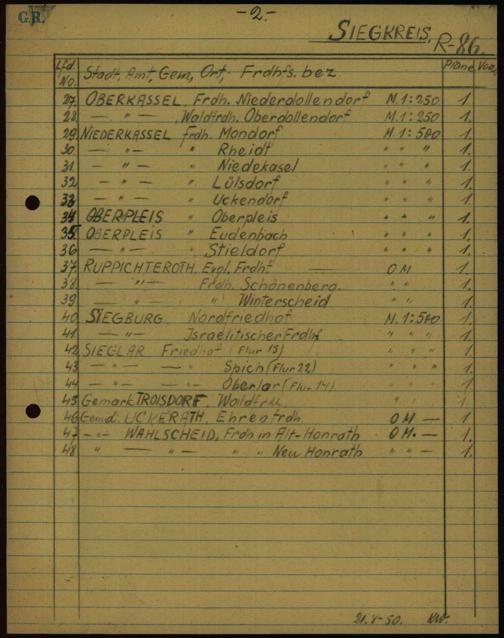 G.R.
-2-
SIEGKREIS, R-86.
Lfd. No. Stadt, Amt, Gem, Ort, Frdhfs. bez. Pläne Vorz.
27 OBERKASSEL, Frdh. Niederdollendorf M. 1:250 1.
28 — " — Waldfrdh. Oberdollendorf M. 1:250 1.
29 NIEDERKASSEL Frdh. Mondorf M. 1:500 1.
30 — " — " Rheidt " " " 1.
31 — " — " Niedekasel " " " 1.
32 — " — " Lülsdorf " " " 1.
33 — " — " Uckendorf " " " 1.
34 OBERPLEIS " Oberpleis " " " 1.
35 OBERPLEIS " Eudenbach " " " 1.
36 — " — " Stieldorf " " " 1.
37 RUPPICHTEROTH, Evgl. Frdhf — O M 1.
38 — " — Frdh. Schönenberg. " " 1.
39 — " — " Winterscheid " " 1.
40 SIEGBURG Nordfriedhof M. 1:500 1.
41 — " — Israelitischer Frdhf " " " 1.
42 SIEGLAR Friedhof (Flur 15) " " " 1.
43 — " — " — Spich (Flur 22) " " " 1.
44 — " — " — Oberlar (Flur 14) " " " 1.
45 Gemark TROISDORF, Waldfrdh. " " " 1
46 Gemd. UCKERATH, Ehrenfrdh. O M — 1.
47 — " — WAHLSCHEID, Frdh in Alt-Honrath O M. — 1.
48 " — " — " " Neu Honrath " " 1.
21.8-50. KW.